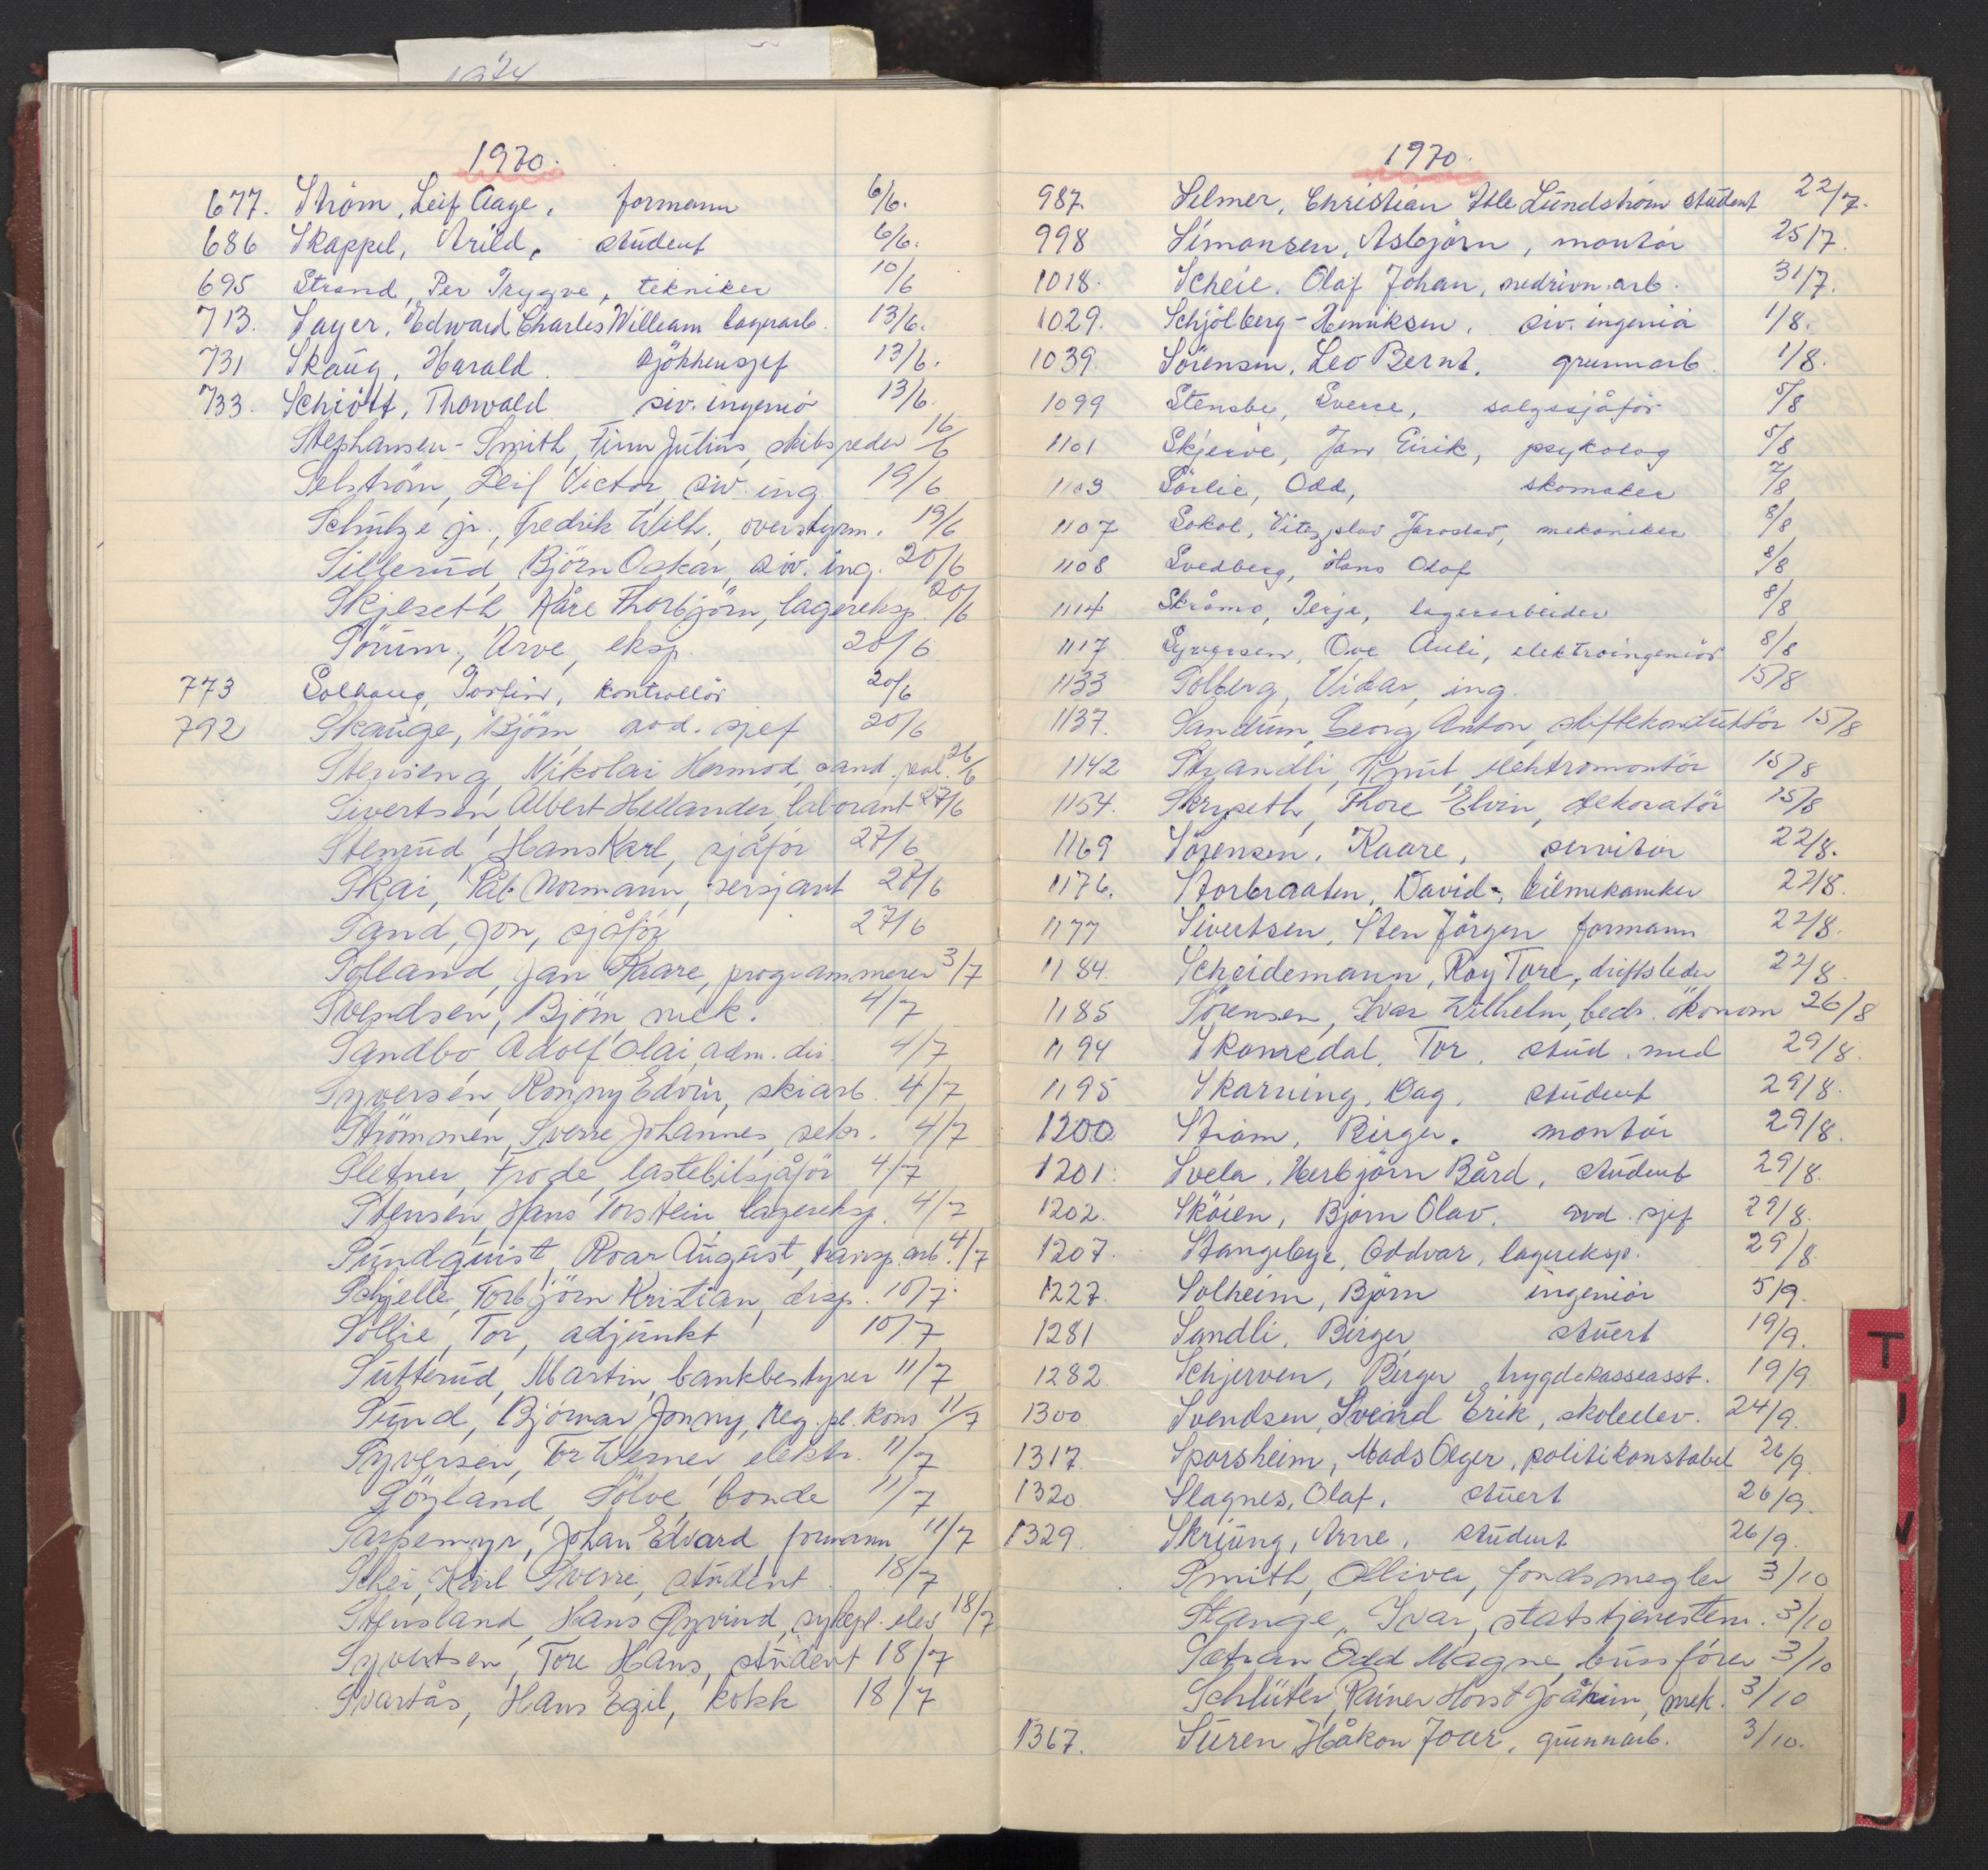 1974
1970.
677. Ström, Leif Aage, formann 6/6.
686 Skappel, Arild, student 6/6.
695 Strand, Per Trygve, tekniker 10/6
713. Sayer, Edward Charles William lagerarb. 13/6.
731 Skaug, Harald. kjökkensjef 13/6.
733. Schiött, Thorvald siv. ingeniö 13/6
Stephansen-Smith, Finn Julius, skibsreder 16/6
Selström, Leif Victor, siv. ing 19/6
Schultze jr., Fredrik Wilh., overstyrm. 19/6
Sillerud, Björn Oskar, siv. ing. 20/6
Skjeseth Kåre Thorbjörn, lagereksp. 20/6
Sörum, Arve, eksp. 20/6
773 Solhaug, Torfinn, kontrollör 20/6
792 Skauge, Björn avd. sjef 20/6
Stenseng, Nikolai Hermod, cand. real. 26/6
Sivertsen, Albert Hellander, laborant 27/6
Stenrud, Hans Karl, sjåför 27/6
Skai, Pål Normann, sersjant 27/6
Sand, Jon, sjåför 27/6
Solland, Jan Kaare, programmerer 3/7
Svendsen, Björn, mek. 4/7
Sandbo, Adolf Olai, adm. dir. 4/7
Syversen, Ronny Edvin, skiarb. 4/7
Strömmen, Sverre Johannes, sekr. 4/7
Sletner, Frode, lastebilsjåför 4/7
Stensen, Hans Torstein lagereksp. 4/7
Sundquist, Roar August, transp. arb. 4/7
Schjelle, Torbjörn Kristian, disp. 10/7
Sollie, Tor, adjunkt 10/7
Sutterud, Martin, bankbestyrer 11/7
Sund, Björnar Jonny, reg. pl. kons 11/7
Syversen, Tor Werner, elektr. 11/7
Söyland, Sölve, bonde 11/7
Sarpemyr, Johan Edvard, formann 11/7
Schei, Karl Sverre, student 18/7
Stensland, Hans Øyvind, sykepl. elev 18/7
Syvertsen, Tore Hans, student 18/7
Svartås, Hans Egil, kokk 18/7
1970.
987. Selmer, Christian Atle Lundström student 22/7.
998 Simonsen, Asbjörn, montör 25/7.
1018. Scheie, Olaf Johan, nedrivn. arb. 31/7.
1029. Schjölberg-Henriksen, siv. ingeniö 1/8.
1039. Sörensen, Leo Bernt, grunnarb. 1/8.
1099 Stensby, Sverre, salgssjåför 5/8
1101 Skjerve, Jan Eirik, psykolog 5/8
1103 Sörlie, Odd, skomaker 7/8
1107 Sokol, Vitezslav Jaroslav, mekaniker 8/8
1108 Svedberg, Hans Olof 8/8
1114 Skråmo, Terje, lagerarbeider 8/8
1117 Syversen, Ove Auli, elektroingeniör 8/8
1133 Solberg, Vidar, ing. 15/8
1137. Sandum, Georg Anton, skiftekonduktör 15/8
1142 Strandli, Knut, elektromontör 15/8
1154. Skryseth, Thore Elvin, dekoratör 15/8
1169 Sörensen, Kaare, servitör 22/8.
1176. Storbraaten, David, bilmekaniker 22/8.
1177 Sivertsen, Sten Jörgen formann 22/8.
1184. Scheidemann, Roy Tore, driftsleder 22/8.
1185 Sörensen, Ivar Wilhelm, beds. ökonom 26/8
1194 Skomedal, Tor, stud. med 29/8.
1195 Skarning, Dag, student 29/8.
1200 Ström, Birger. montör 29/8.
1201. Svela, Herbjörn Bård, student 29/8.
1202. Sköien, Björn Olav. avd. sjef 29/8.
1207. Stangebye, Oddvar, lagereksp. 29/8.
1227. Solheim, Björn ingeniör 5/9.
1281 Sandli, Birger stuert 19/9.
1282. Schjerven, Birger trygdekasseasst. 19/9
1300 Svendsen, Sveind Erik, skoleelev. 24/9.
1317. Sporsheim, Mads Olger, politikonstabel 26/9.
1320. Slagnes, Olaf, stuert 26/9.
1329. Skriung, Arne, student 26/9.
Smith, Olliver, fondsmegler 3/10
Stange, Ivar, statstjenestem. 3/10
Sætran Odd Magne, bussförer 3/10
Schlüter, Rainer Horst Joakim, mek. 3/10
1367. Suren Håkon Joar, grunnarb. 3/10.
T